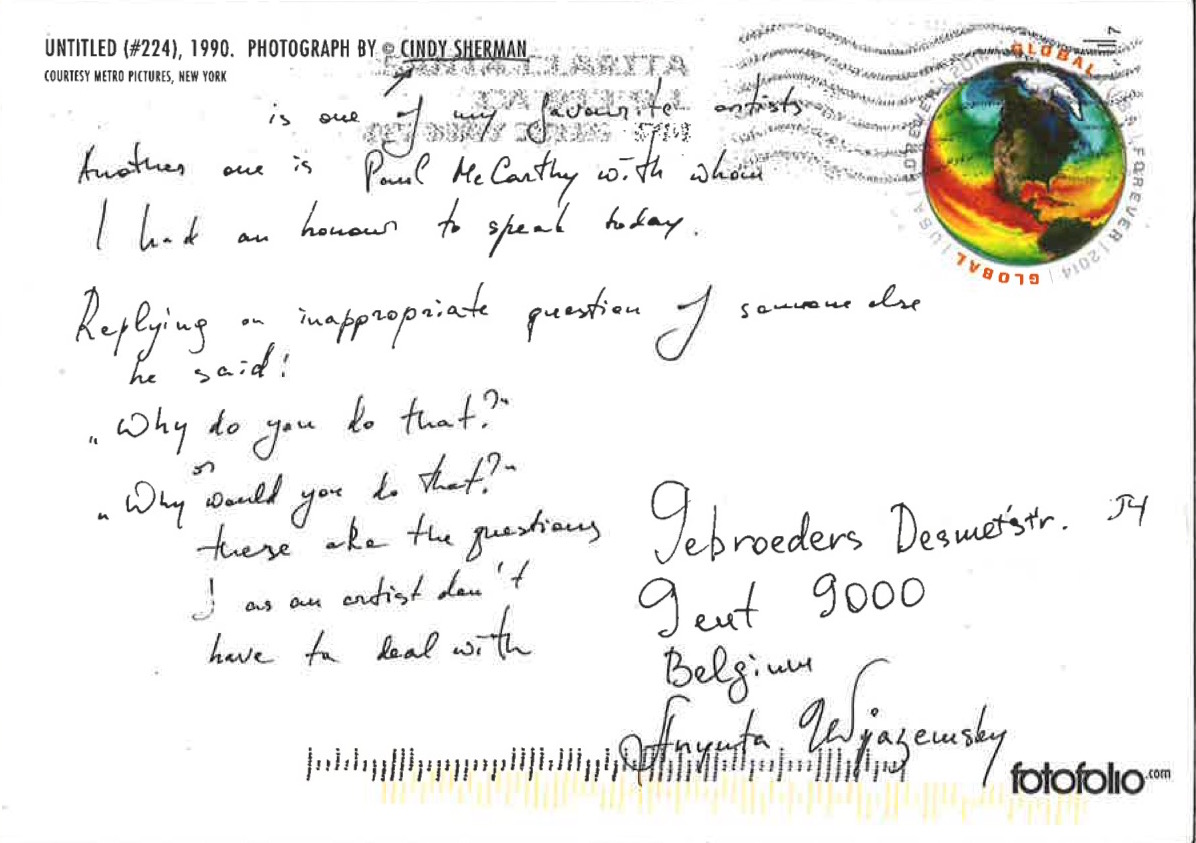 UNTITLED (#224), 1990. PHOTOGRAPH BY © CINDY SHERMAN
COURTESY METRO PICTURES, NEW YORK
GLOBAL
FOREVER | 2014
GLOBAL
is one of my favourite artists
Another one is Paul McCarthy with whom
I had an honour to speak today.
Replying on inappropriate question of someone else
he said:
„Why do you do that?“
or
„Why would you do that?“
these are the questions
I as an artist don't
have to deal with
Gebroeders Desmetstr. 54
Gent 9000
Belgium
Anyuta Wiazemsky
fotofolio.com